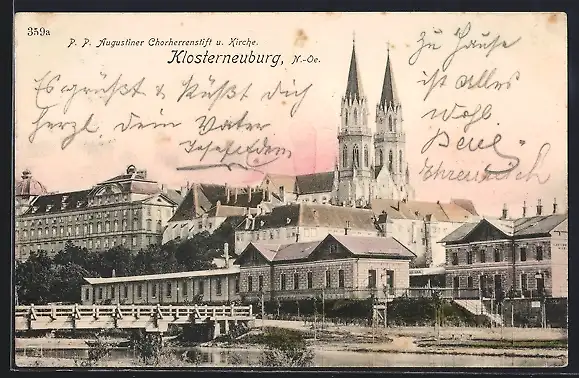 359a
P. P. Augustiner Chorherrenstift u. Kirche.
Klosterneuburg, N.-Oe.
Es grüßt & küßt dich
herzl. dein Vater
zu Hause
ist Alles
wohl